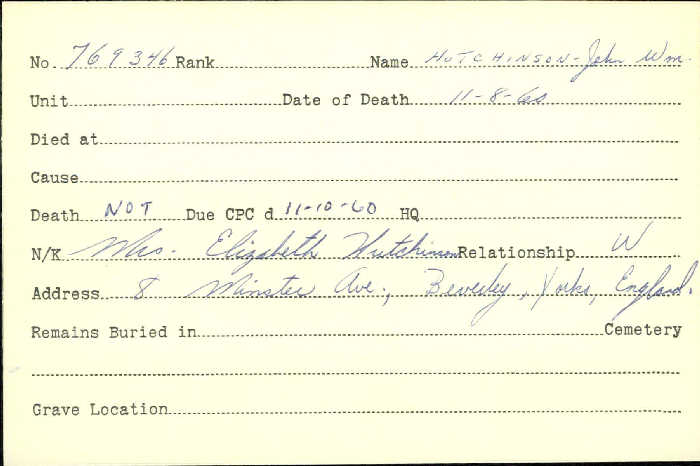 No. 769346 Rank Name HUTCHINSON - John Wm.
Unit Date of Death 11-8-60
Died at
Cause
Death NOT Due CPC d 11-10-60 HQ
N/K Mrs. Elizabeth Hutchinson Relationship W
Address 8 Minster Ave., Beverley, Yorks, England.
Remains Buried in Cemetery
Grave Location